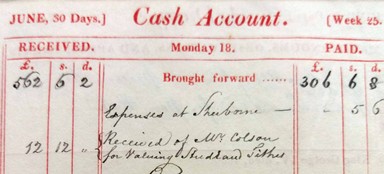 JUNE, 30 Days.] Cash Account. [Week 25.
RECEIVED. Monday 18. PAID.
£. s. d. £. s. d.
562 6 2 Brought forward ...... 306 6 8
Expenses at Sherborne — - 5 6
12 12 " Received of Mr. Colson
for Valuing Studland Tithes